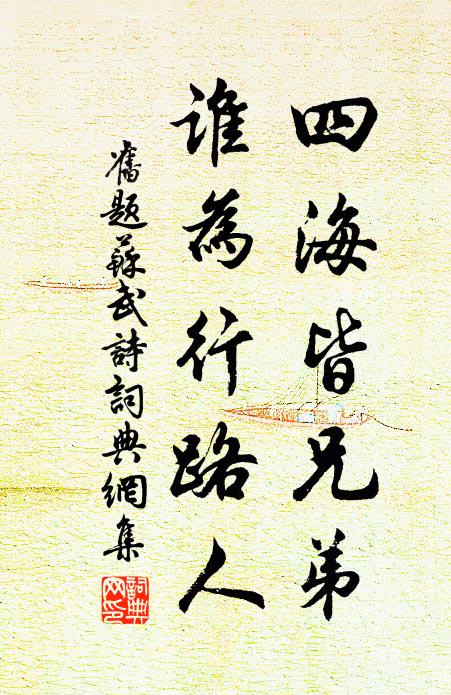 四海皆兄弟
誰為行路人
舊題蘇武詩詞典網集
詞典网印